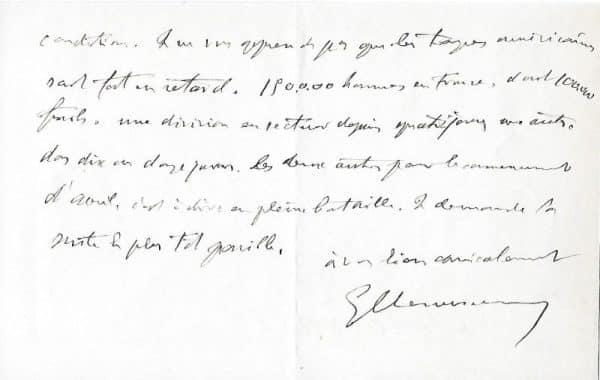 condition. Je ne vous apprends pas que les troupes américaines
sont fort en retard. 150.000 hommes en France, dont 100.000
fusils. Une division en secteur depuis quatre jours, une autre
dans dix ou douze jours. Les deux autres pour le commencement
d'avril, c'est à dire en pleine bataille. Je demande la
suite le plus tôt possible.
à vous bien amicalement
GClemenceau